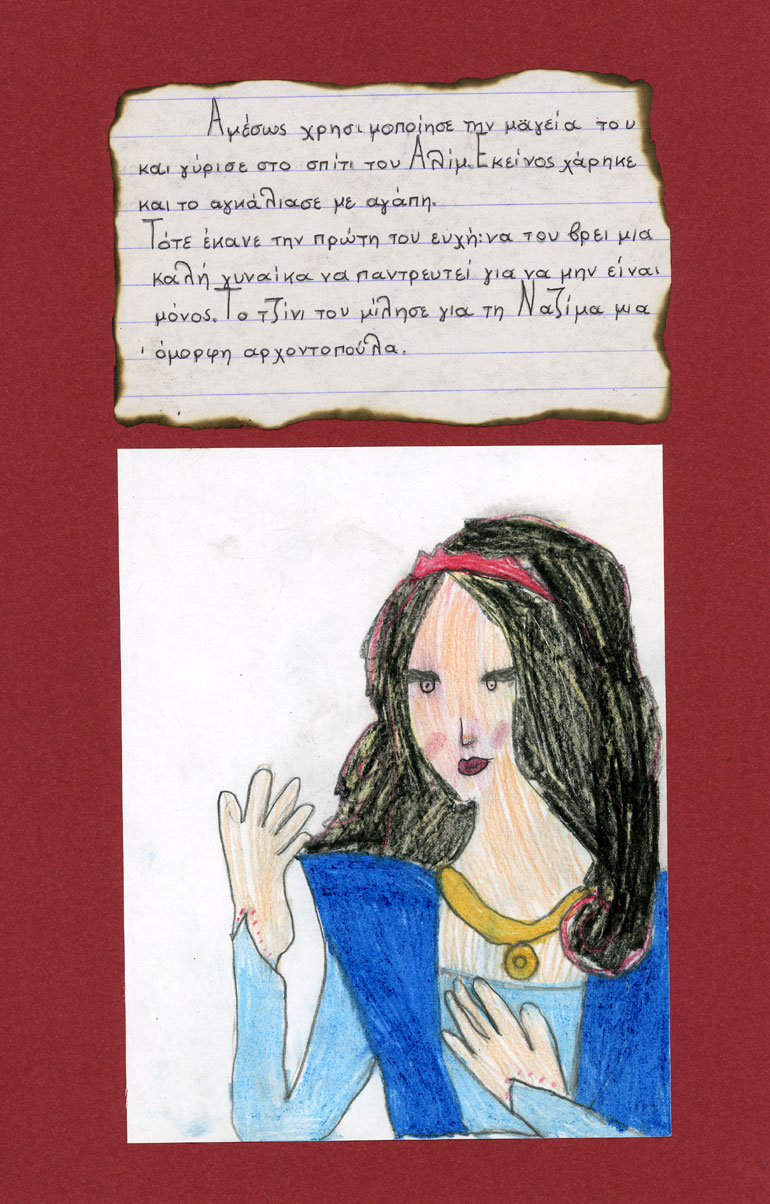 Αμέσως χρησιμοποίησε την μαγεία του
και γύρισε στο σπίτι του Αλίμ. Εκείνος χάρηκε
και το αγκάλιασε με αγάπη.
Τότε έκανε την πρώτη του ευχή: να του βρει μια
καλή γυναίκα να παντρευτεί για να μην είναι
μόνος. Το τζίνι του μίλησε για τη Ναζίμα μια
όμορφη αρχοντοπούλα.